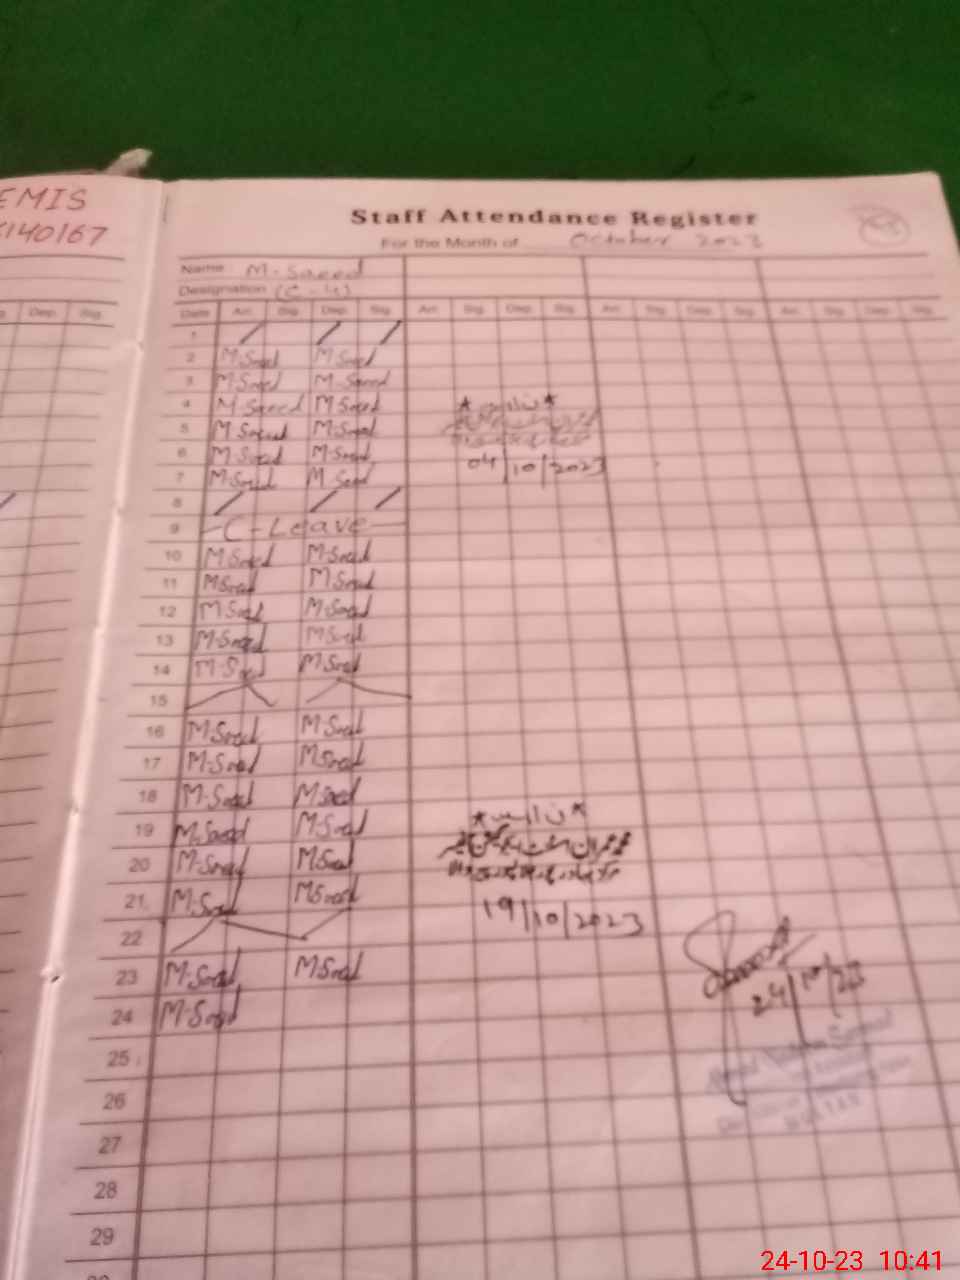 EMIS
140167
Dep. Sig.
Staff Attendance Register
For the Month of October 2023
Name M. Saeed
Designation (C-4)
Date Arr. Sig. Dep. Sig. Arr. Sig. Dep. Sig. Arr. Sig. Dep. Sig. Arr. Sig. Dep. Sig.
1
2 M.Saeed M.Saeed
3 M.Saeed M.Saeed
4 M.Saeed M.Saeed
5 M.Saeed M.Saeed
6 M.Saeed M.Saeed
7 M.Saeed M.Saeed
04/10/2023
8
9 C-Leave
10 M.Saeed M.Saeed
11 M.Saeed M.Saeed
12 M.Saeed M.Saeed
13 M.Saeed M.Saeed
14 M.Saeed M.Saeed
15
16 M.Saeed M.Saeed
17 M.Saeed M.Saeed
18 M.Saeed M.Saeed
19 M.Saeed M.Saeed
20 M.Saeed M.Saeed
21 M.Saeed M.Saeed
19/10/2023
22
23 M.Saeed M.Saeed
24 M.Saeed
24/10/23
25
26
27
28
29
24-10-23 10:41